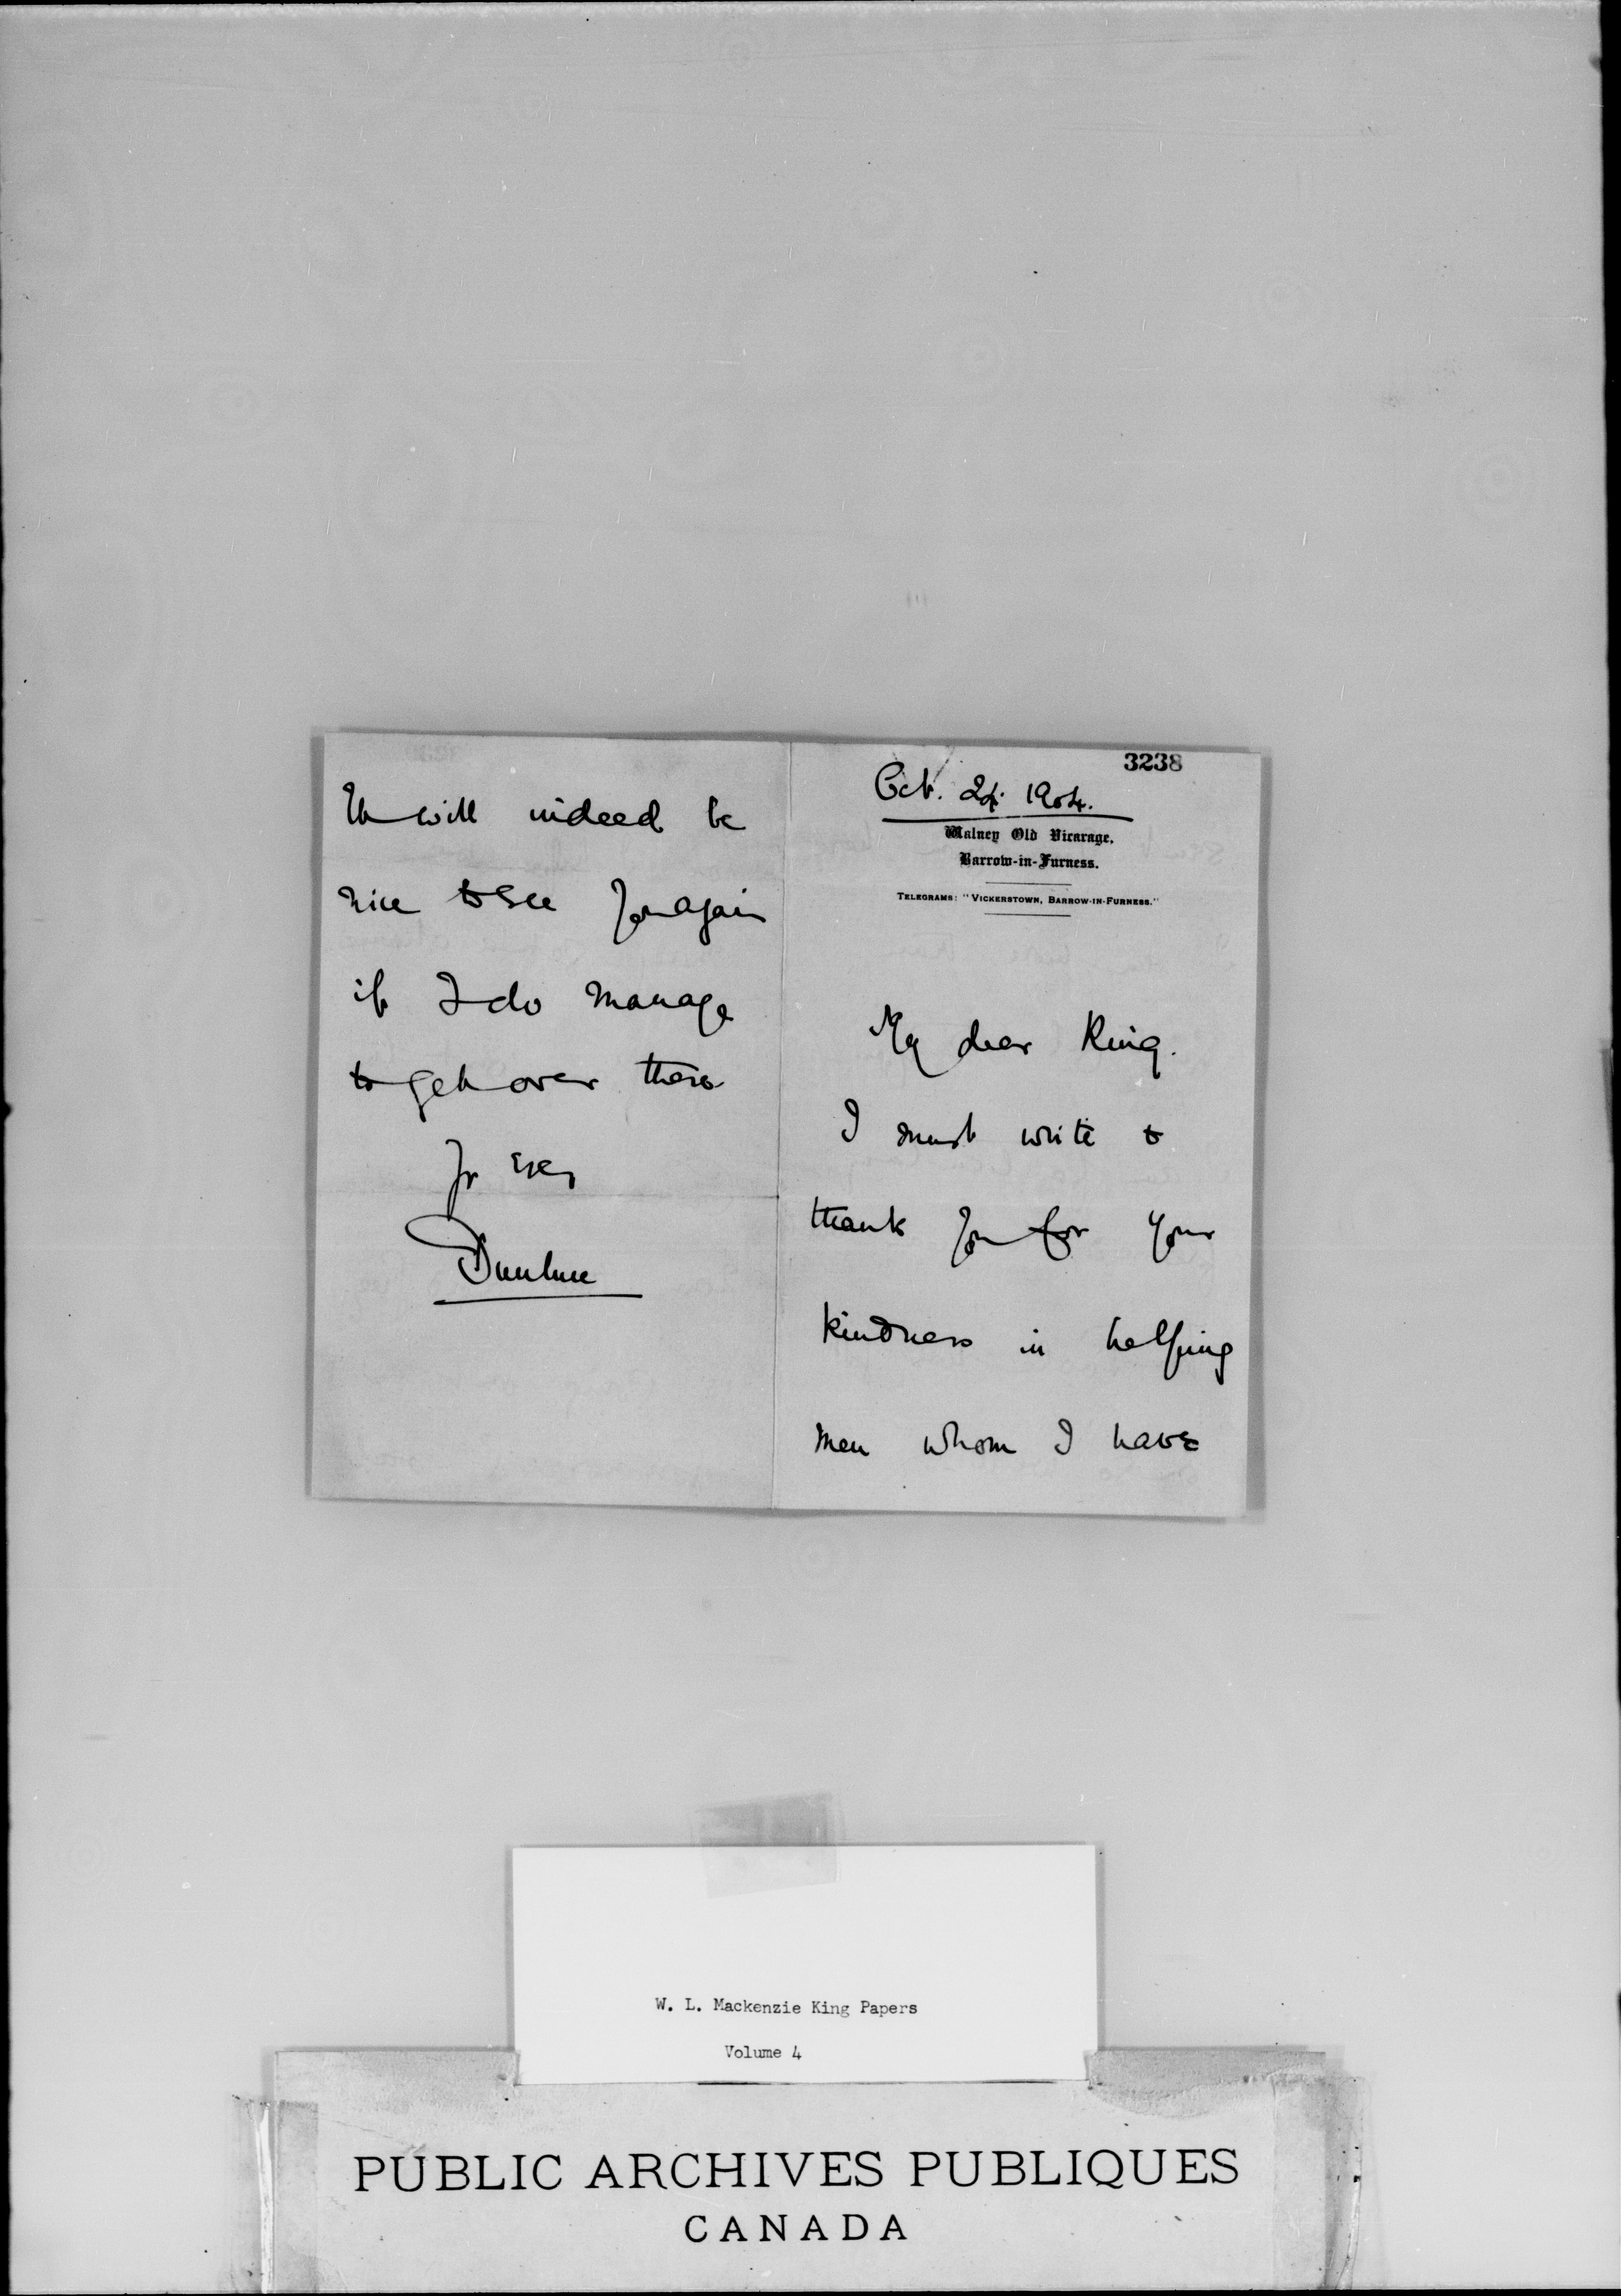 3238
Oct. 24. 1904.
Walney Old Vicarage,
Barrow-in-Furness.
TELEGRAMS: "VICKERSTOWN, BARROW-IN-FURNESS."
My dear King.
I must write to
thank you for your
kindness in helping
men whom I have
It will indeed be
nice to see you again
if I do manage
to get over there
Yr ever
Dunluce
W. L. Mackenzie King Papers
Volume 4
PUBLIC ARCHIVES PUBLIQUES
CANADA